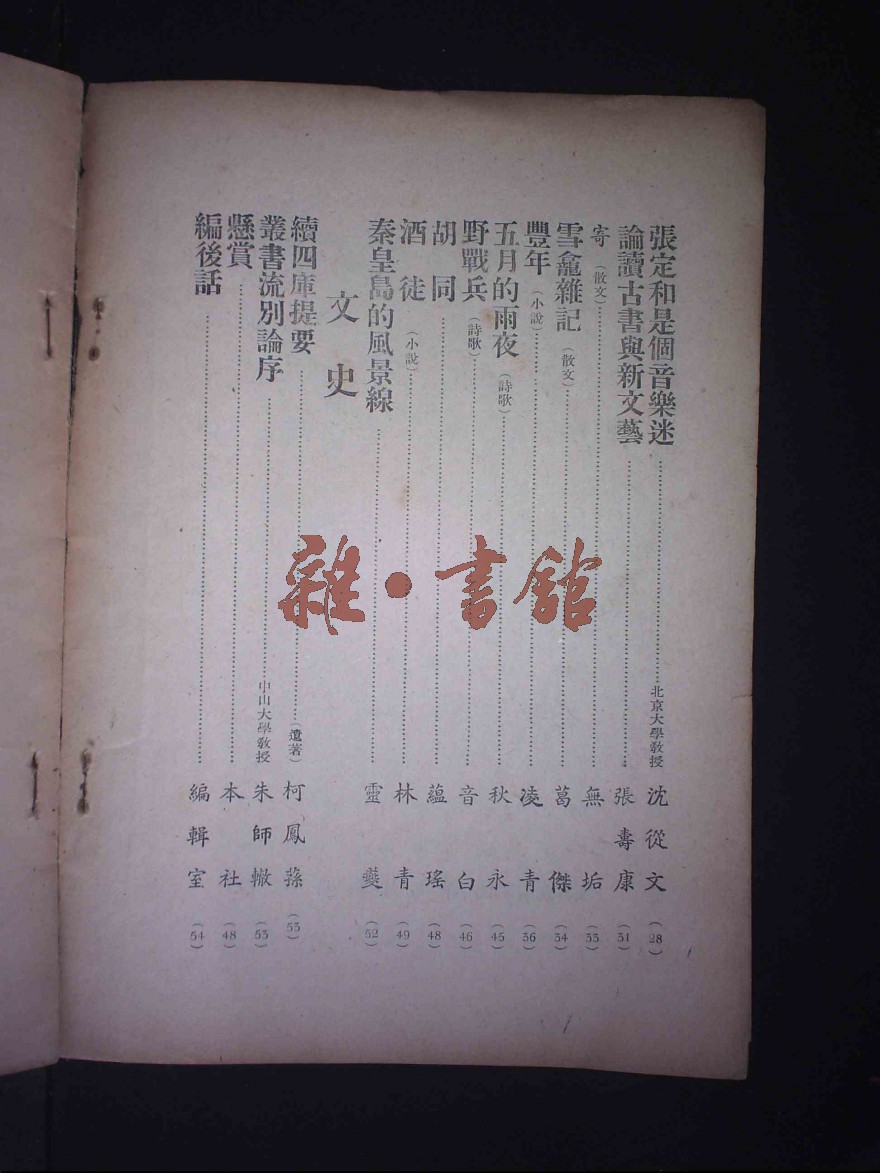 張定和是個音樂迷 北京大學教授 沈從文 (28)
論讀古書與新文藝 張壽康 (31)
寄 (散文) 無垢 (33)
雪龕雜記 (散文) 葛傑 (34)
豐年 (小說) 凌青 (36)
五月的雨夜 (詩歌) 秋永 (45)
野戰兵 (詩歌) 音白 (46)
胡同 蘊瑤 (48)
酒徒 (小說) 林青 (49)
秦皇島的風景線 靈奬 (52)
文史
續四庫提要 (遺著) 柯鳳蓀 (53)
叢書流別論序 中山大學教授 朱師轍 (53)
懸賞 本社 (48)
編後話 編輯室 (54)
雜·書館